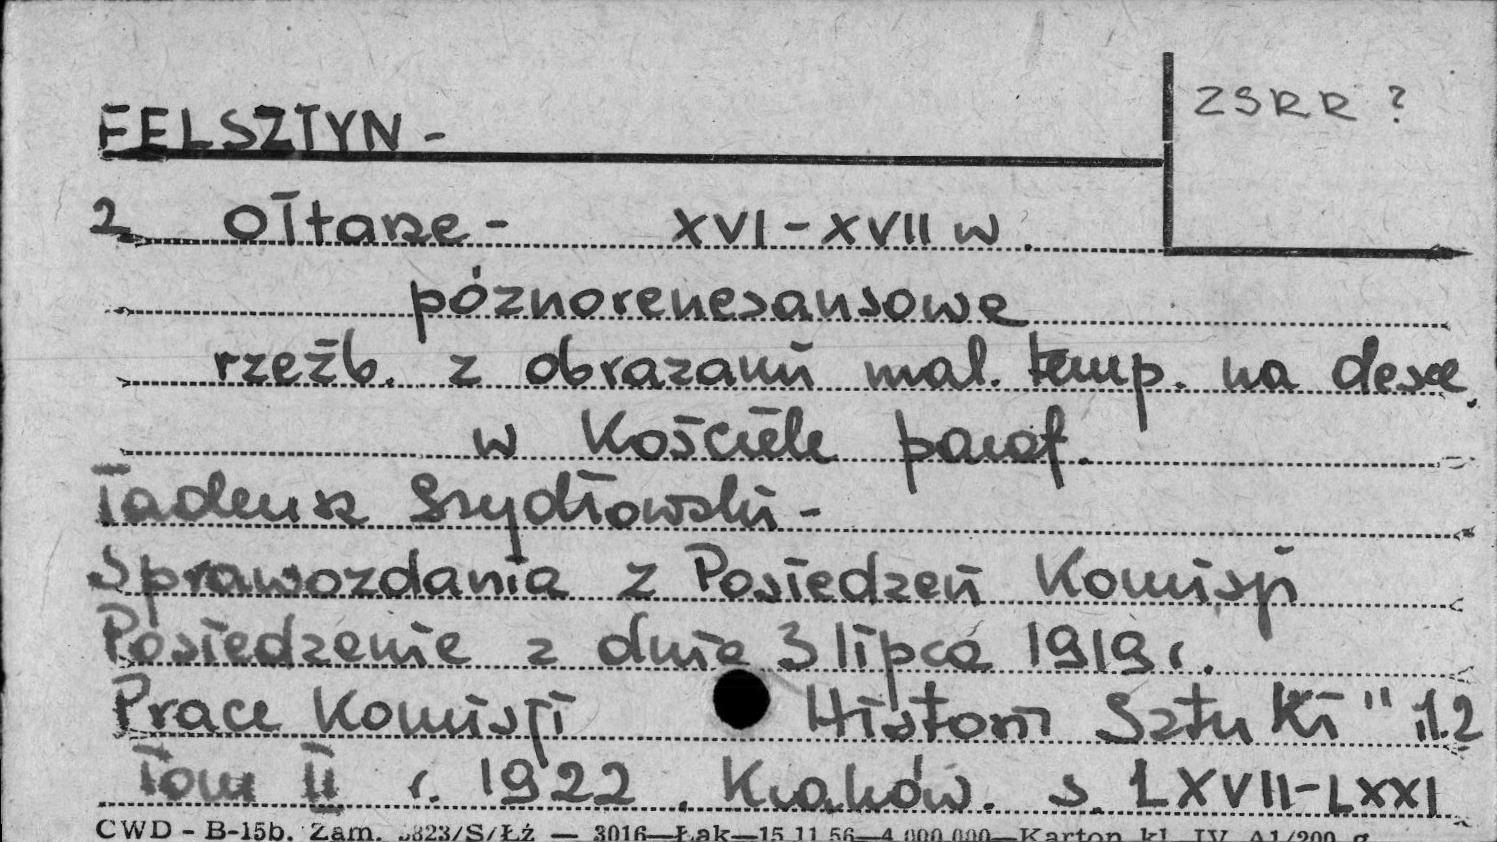 FELSZTYN -
ZSRR ?
2 ołtarze - XVI - XVII w.
póznorenesansowe
rzeźb. z obrazami mal. temp. na desce.
w Kościele paraf.
Tadeusz Szydłowski -
Sprawozdania z Posiedzeń Komisji
Posiedzenie z dnia 3 lipca 1919 r.
Prace Komisji Historii Sztuki "
Tom II r. 1922. Kraków. s. LXVII-LXXI
CWD - B-15b. Zam. 3823/S/Łż — 3016—Łak—15.11.56—4.000.000—Karton kl. IV A1/200 g